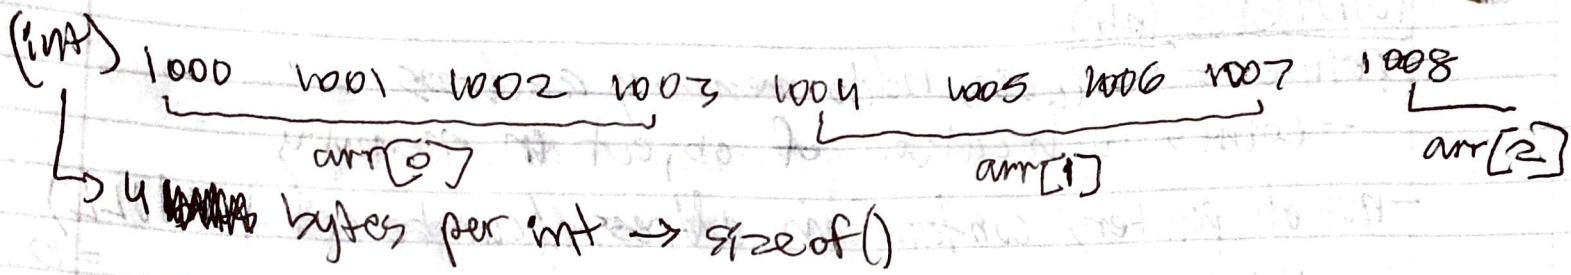 (int) 1000 1001 1002 1003 1004 1005 1006 1007 1008
arr[0] arr[1] arr[2]
4 bytes per int → sizeof()